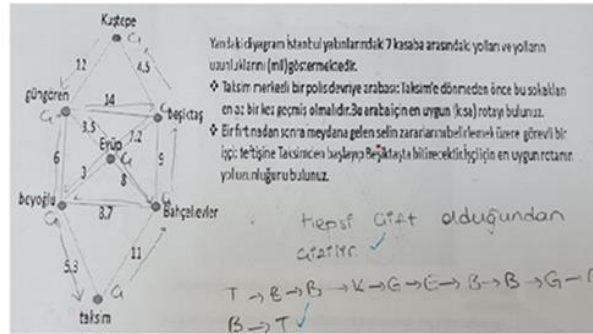 Kuştepe
Ç
12
4,5
güngören
Ç
14
beşiktaş
Ç
3,5
7,2
Eyüp
Ç
6
9
3
8
beyoğlu
Ç
3.7
Bahçelievler
Ç
5.3
11
taksim
Ç
Yandaki diyagram İstanbul yakınlarındaki 7 kasaba arasındaki yolları ve yolların
uzunluklarını (mil) göstermektedir.
❖ Taksim merkezli bir polis devriye arabası: Taksim'e dönmeden önce bu sokakları
en az bir kez geçmiş olmalıdır. Bu araba için en uygun (kısa) rotayı bulunuz.
❖ Bir fırtınadan sonra meydana gelen selin zararlarını belirlemek üzere görevli bir
işçi: teftişine Taksimden başlayıp Beşiktaşta bitirecektir. İşçi için en uygun rotanın
yol uzunluğunu bulunuz.
Hepsi Çift olduğundan
Çizilir. ✓
T → B → B → K → G → E → B → B → G →
B → T ✓